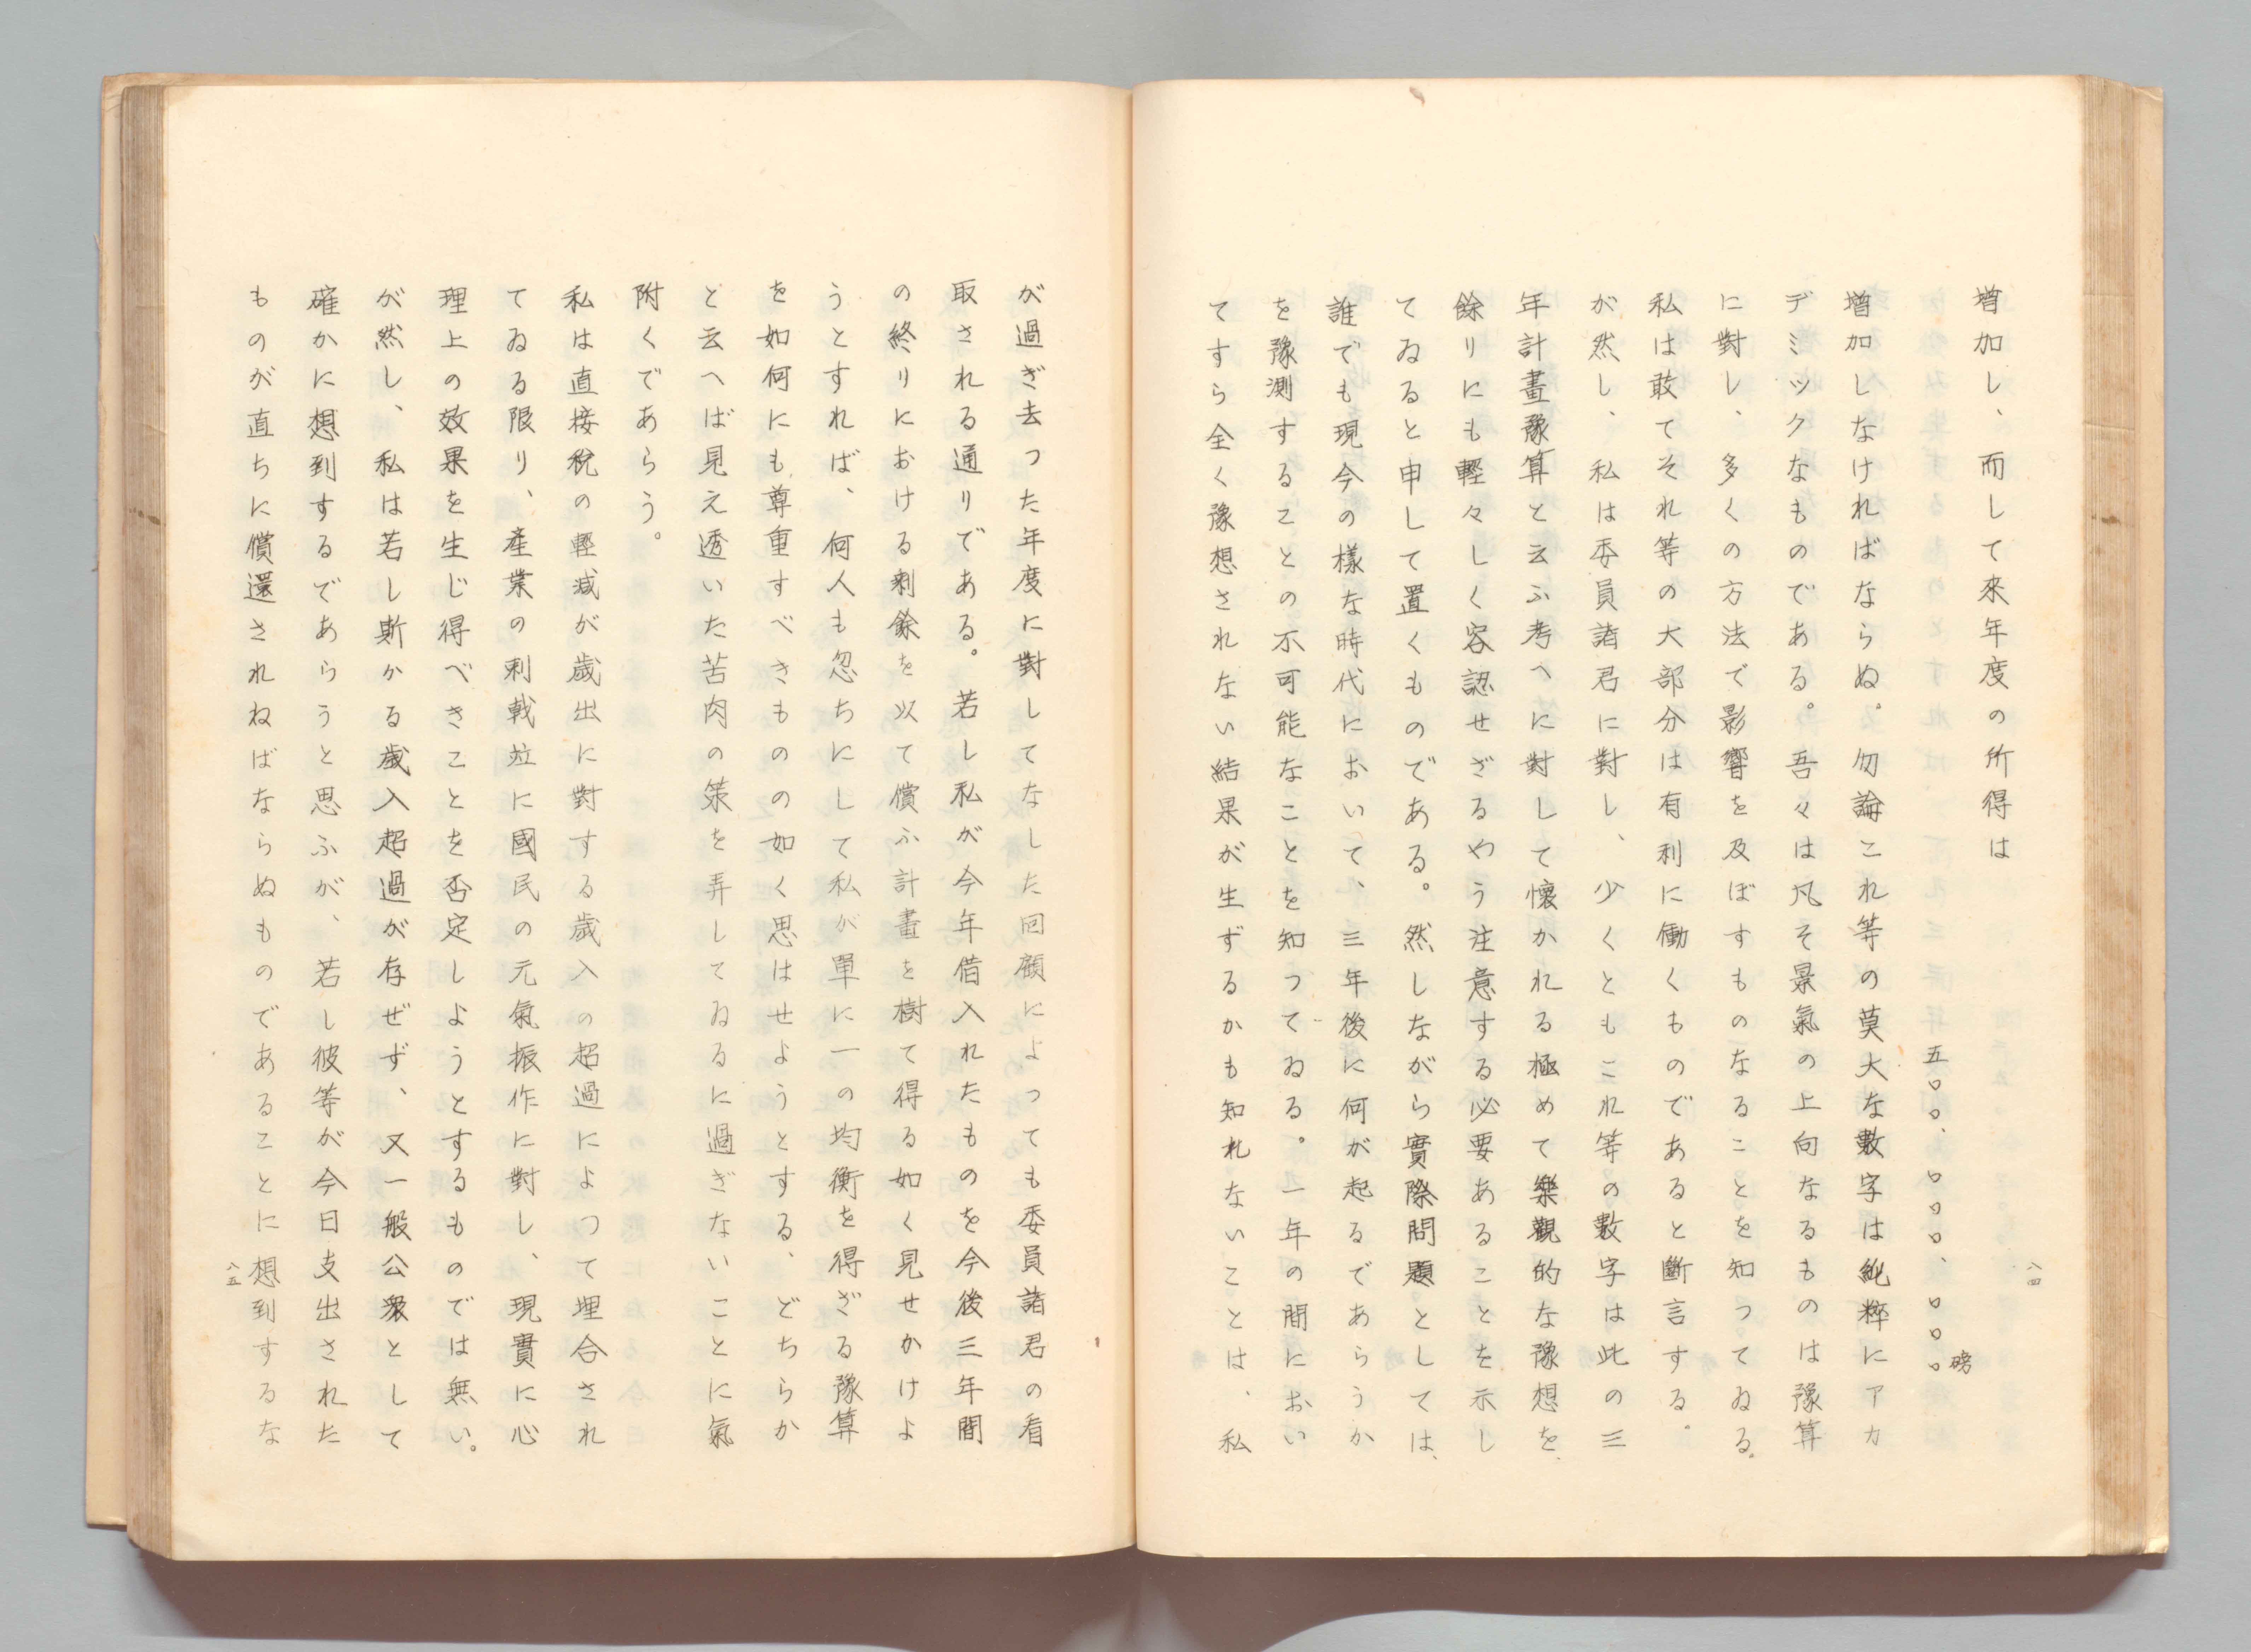 八四
増加し、而して來年度の所得は
五〇〇、〇〇〇、〇〇〇磅
増加しなければならぬ。勿論これ等の莫大な數字は純粹にアカ
デミックなものである。吾々は凡そ景氣の上向なるものは豫算
に對し、多くの方法で影響を及ぼすものなることを知つてゐる。
私は敢てそれ等の大部分は有利に働くものであると斷言する。
が然し、私は委員諸君に對し、少くともこれ等の數字は此の三
年計畫豫算と云ふ考へに對して懷かれる極めて樂觀的な豫想を、
餘りにも輕々しく容認せざるやう注意する必要あることを示し
てゐると申して置くものである。然しながら實際問題としては、
誰でも現今の樣な時代において、三年後に何が起るであらうか
を豫測することの不可能なことを知つてゐる。一年の間におい
てすら全く豫想されない結果が生ずるかも知れないことは、私
が過ぎ去つた年度に對してなした回顧によつても委員諸君の看
取される通りである。若し私が今年借入れたものを今後三年間
の終りにおける剩餘を以て償ふ計畫を樹て得る如く見せかけよ
うとすれば、何人も忽ちにして私が單に一の均衡を得ざる豫算
を如何にも尊重すべきものの如く思はせようとする、どちらか
と云へば見え透いた苦肉の策を弄してゐるに過ぎないことに氣
附くであらう。
私は直接稅の輕減が歲出に對する歲入の超過によつて埋合され
てゐる限り、產業の刺戟竝に國民の元氣振作に對し、現實に心
理上の效果を生じ得べきことを否定しようとするものでは無い。
が然し、私は若し斯かる歲入超過が存ぜず、又一般公衆として
確かに想到するであらうと思ふが、若し彼等が今日支出された
ものが直ちに償還されねばならぬものであることに想到するな
八五